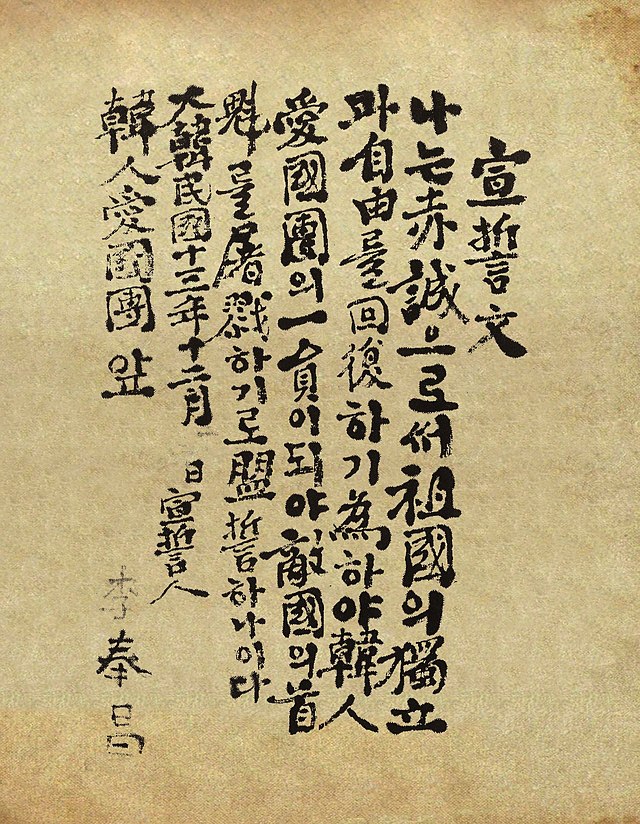 宣誓文
나는赤誠으로써祖國의獨立
과自由를回復하기爲하야韓人
愛國團의一員이되야敵國의首
魁를屠戮하기로盟誓하나이다
大韓民國十三年十二月 日宣誓人
韓人愛國團앞 李奉昌